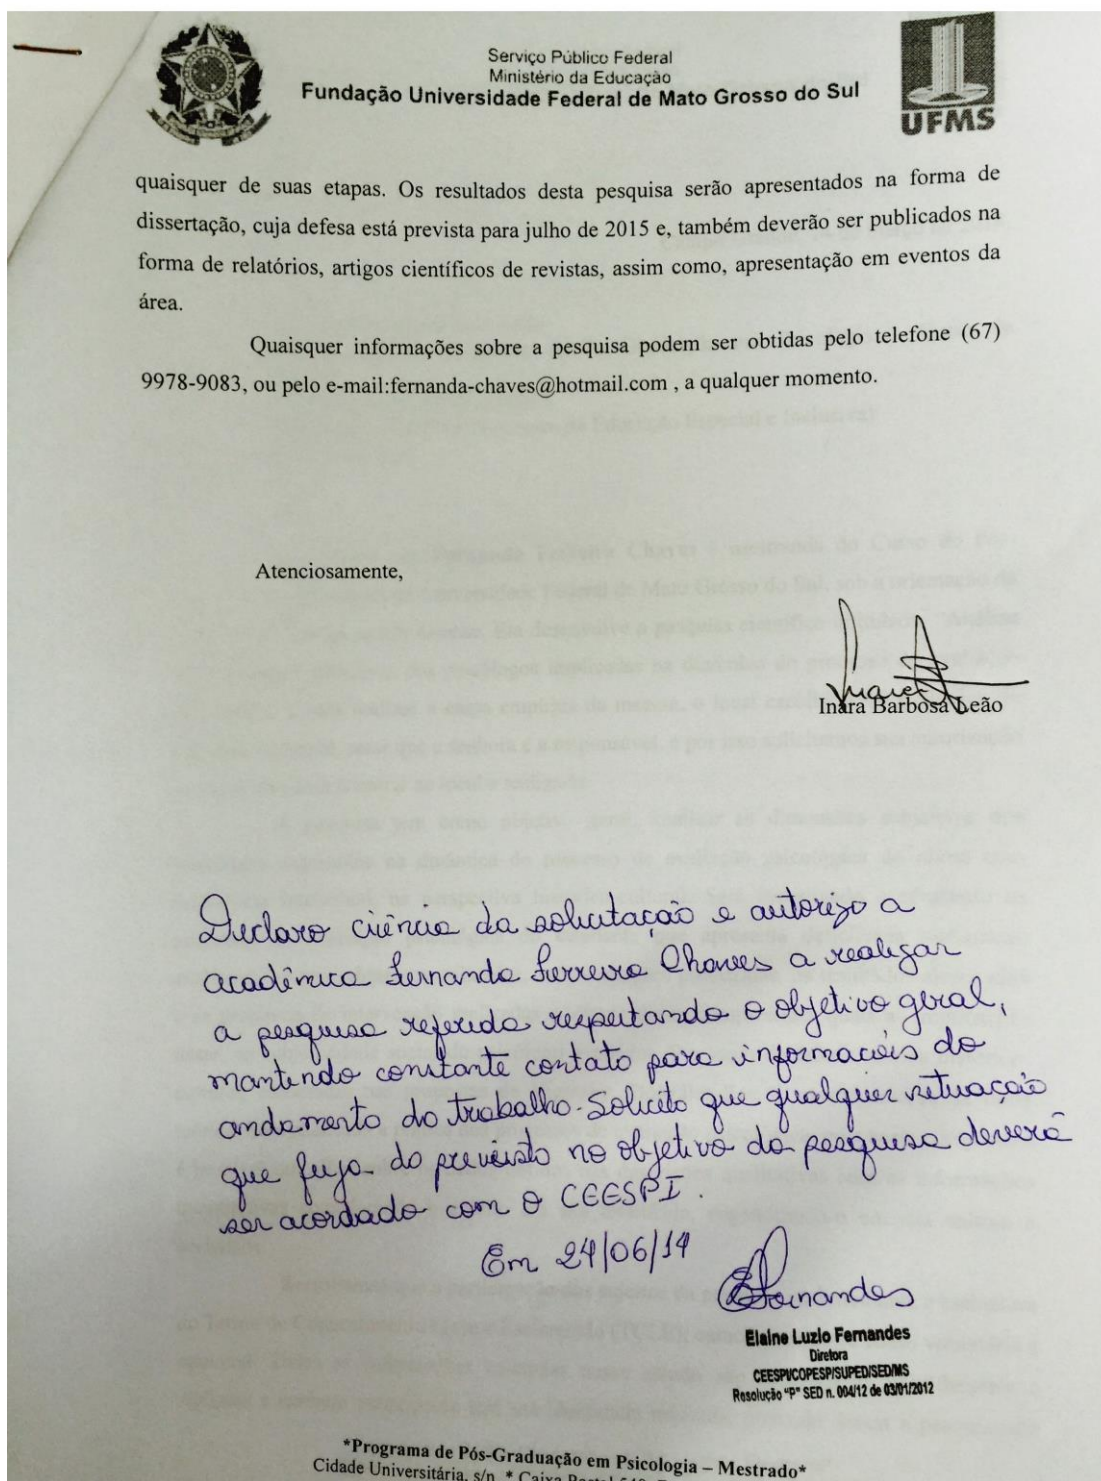 Serviço Público Federal
Ministério da Educação
Fundação Universidade Federal de Mato Grosso do Sul
UFMS
quaisquer de suas etapas. Os resultados desta pesquisa serão apresentados na forma de
dissertação, cuja defesa está prevista para julho de 2015 e, também deverão ser publicados na
forma de relatórios, artigos científicos de revistas, assim como, apresentação em eventos da
área.
Quaisquer informações sobre a pesquisa podem ser obtidas pelo telefone (67)
9978-9083, ou pelo e-mail:fernanda-chaves@hotmail.com , a qualquer momento.
Atenciosamente,
Inara Barbosa Leão
Declaro ciência da solicitação e autorizo a
acadêmica Fernanda Ferreira Chaves a realizar
a pesquisa referida respeitando o objetivo geral,
mantendo constante contato para informações do
andamento do trabalho. Solicito que qualquer situação
que fuja do previsto no objetivo da pesquisa deverá
ser acordado com o CEESPI.
Em 24/06/14
Elaine Luzio Fernandes
Diretora
CEESPI/COPESP/SUPED/SED/MS
Resolução "P" SED n. 004/12 de 03/01/2012
*Programa de Pós-Graduação em Psicologia – Mestrado*
Cidade Universitária, s/n * Caixa Postal 549